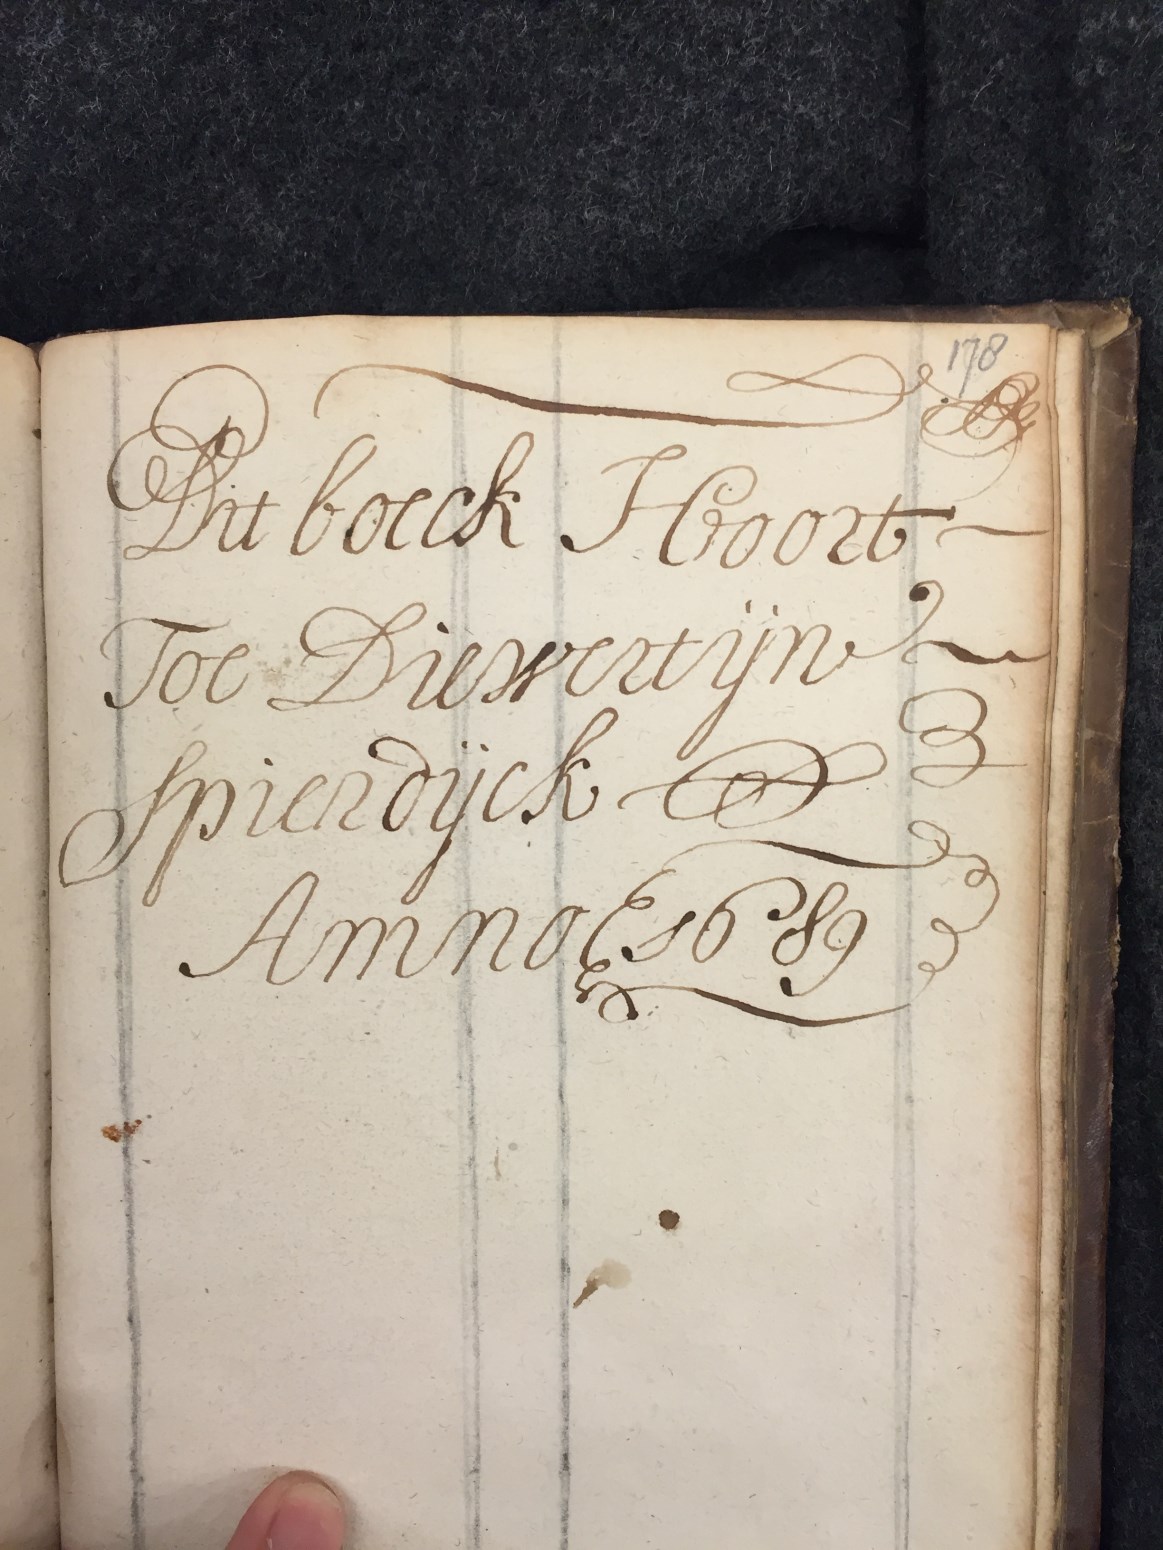 178
Dit boeck Hoort
Toe Diewertijn
Spierdijck
Amno 1689